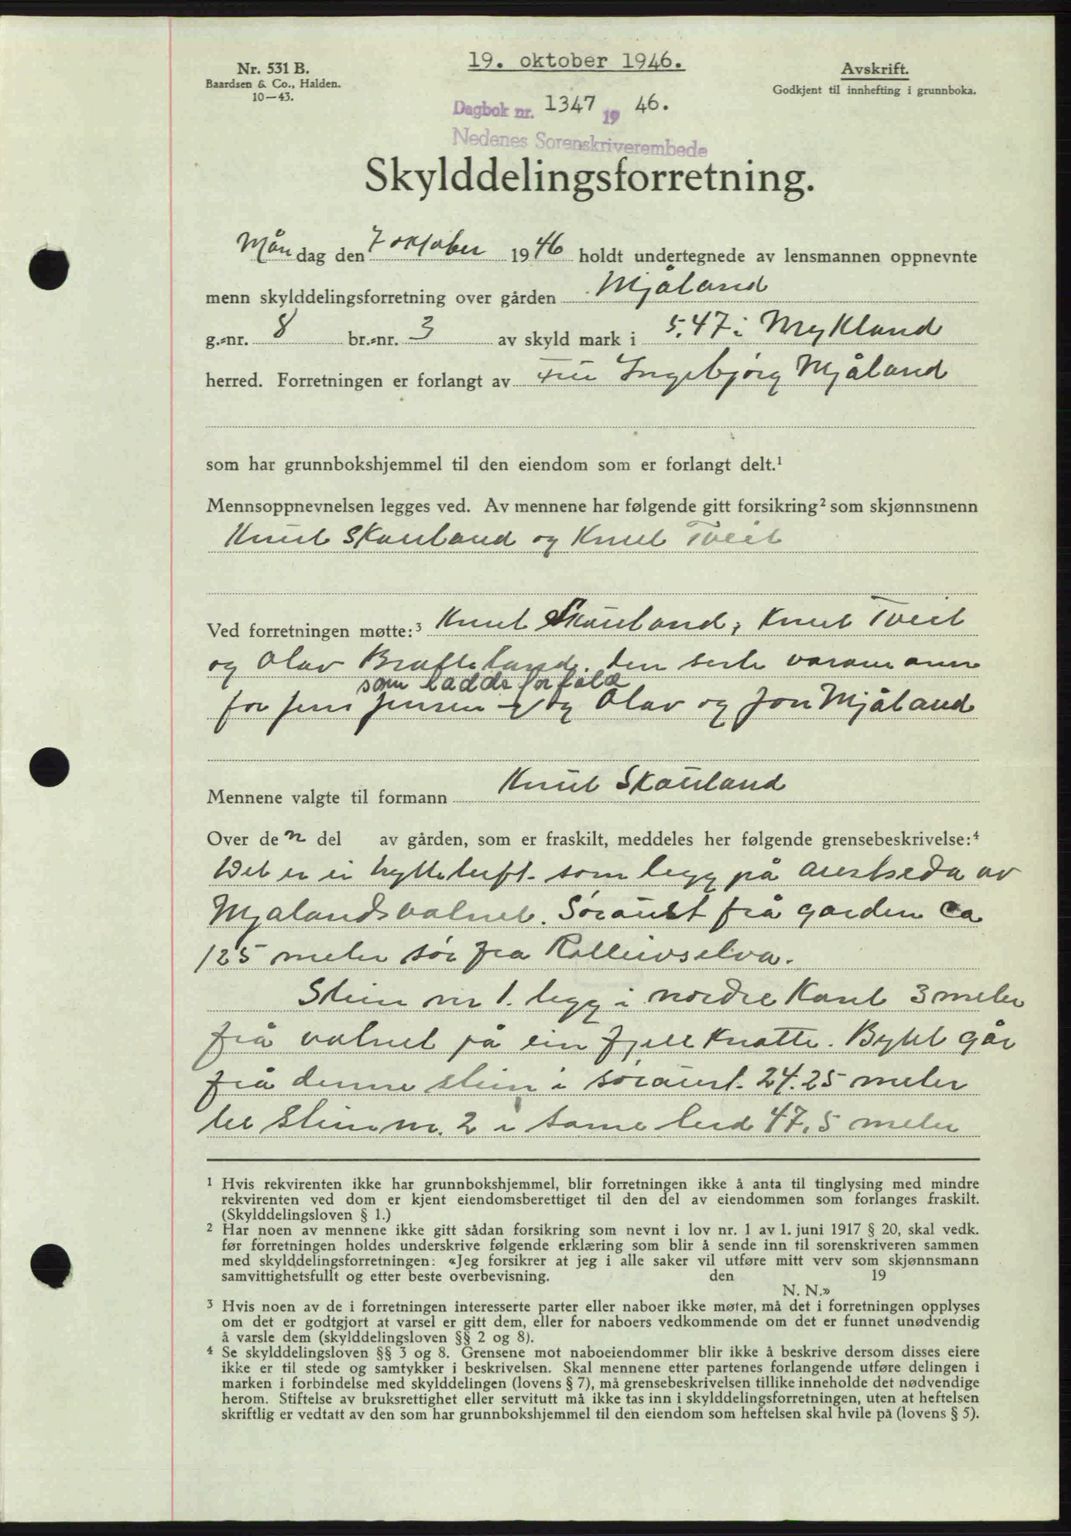 19. oktober 1946.
Nr. 531 B.
Baardsen & Co., Halden.
10-43.
Avskrift.
Godkjent til innhefting i grunnboka.
Dagbok nr. 1347 19 46.
Nedenes Sorenskriverembede
Skylddelingsforretning.
Måndag den 7 oktober 1946 holdt undertegnede av lensmannen oppnevnte
menn skylddelingsforretning over gården Mjåland
g.-nr. 8 br.-nr. 3 av skyld mark i 5.47 i Mykland
herred. Forretningen er forlangt av Fru Ingebjørg Mjåland
som har grunnbokshjemmel til den eiendom som er forlangt delt.¹
Mennsoppnevnelsen legges ved. Av mennene har følgende gitt forsikring² som skjønnsmenn
Knut Skauland og Knut Tveit
Ved forretningen møtte:³ Knut Skauland, Knut Tveit
og Olav den varamann
som hadde forfall
for Jens Jensen og Olav og Jon Mjåland
Mennene valgte til formann Knut Skauland
Over den del av gården, som er fraskilt, meddeles her følgende grensebeskrivelse:⁴
Det er ei hyttetuft som legg på austseda av
Mjalandsvatnet. Søraust frå garden ca
125 meter sør fra
Stein nr 1. legg i nordre Kant 3 meter
frå vatnet på ein fjell Knatte. Bytet går
frå denne stein i søraust. 24.25 meter
til Stein nr. 2 i same leid 47.5 meter
¹ Hvis rekvirenten ikke har grunnbokshjemmel, blir forretningen ikke å anta til tinglysing med mindre
rekvirenten ved dom er kjent eiendomsberettiget til den del av eiendommen som forlanges fraskilt.
(Skylddelingsloven § 1.)
² Har noen av mennene ikke gitt sådan forsikring som nevnt i lov nr. 1 av 1. juni 1917 § 20, skal vedk.
før forretningen holdes underskrive følgende erklæring som blir å sende inn til sorenskriveren sammen
med skylddelingsforretningen: «Jeg forsikrer at jeg i alle saker vil utføre mitt verv som skjønnsmann
samvittighetsfullt og etter beste overbevisning. den 19
N. N.»
³ Hvis noen av de i forretningen interesserte parter eller naboer ikke møter, må det i forretningen opplyses
om det er godtgjort at varsel er gitt dem, eller for naboers vedkommende om det er funnet unødvendig
å varsle dem (skylddelingsloven §§ 2 og 8).
⁴ Se skylddelingsloven §§ 3 og 8. Grensene mot naboeiendommer blir ikke å beskrive dersom disses eiere
ikke er til stede og samtykker i beskrivelsen. Skal mennene etter partenes forlangende utføre delingen i
marken i forbindelse med skylddelingen (lovens § 7), må grensebeskrivelsen tillike inneholde det nødvendige
herom. Stiftelse av bruksrettighet eller servitutt må ikke tas inn i skylddelingsforretningen, uten at heftelsen
skriftlig er vedtatt av den som har grunnbokshjemmel til den eiendom som heftelsen skal hvile på (lovens § 5).